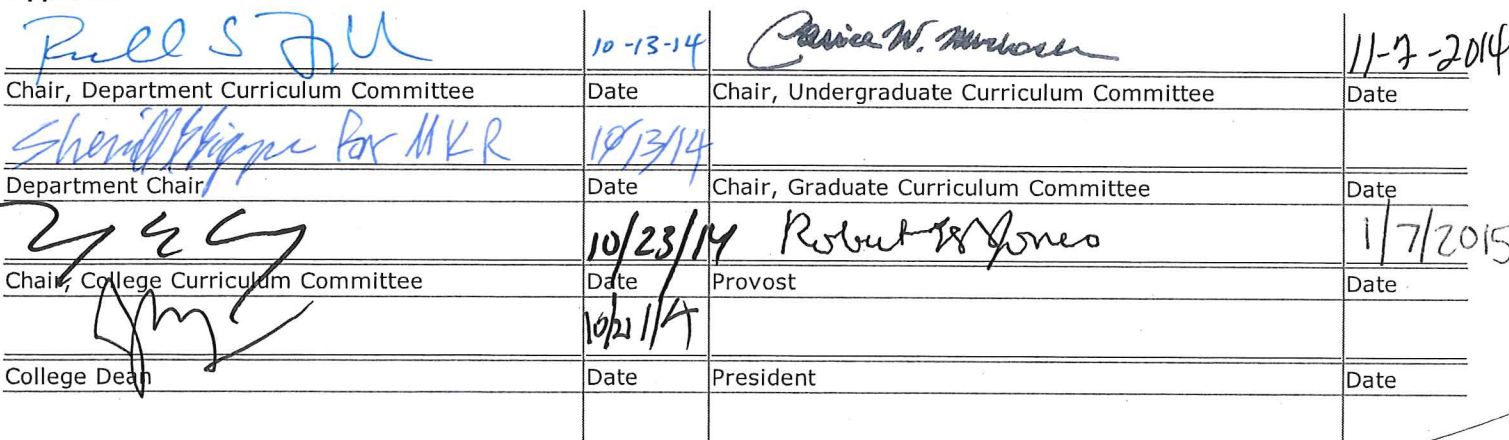 10-13-14 11-7-2014
Chair, Department Curriculum Committee Date Chair, Undergraduate Curriculum Committee Date
for MKR 10/13/14
Department Chair Date Chair, Graduate Curriculum Committee Date
10/23/14 Robert Jones 1/7/2015
Chair, College Curriculum Committee Date Provost Date
College Dean Date President Date